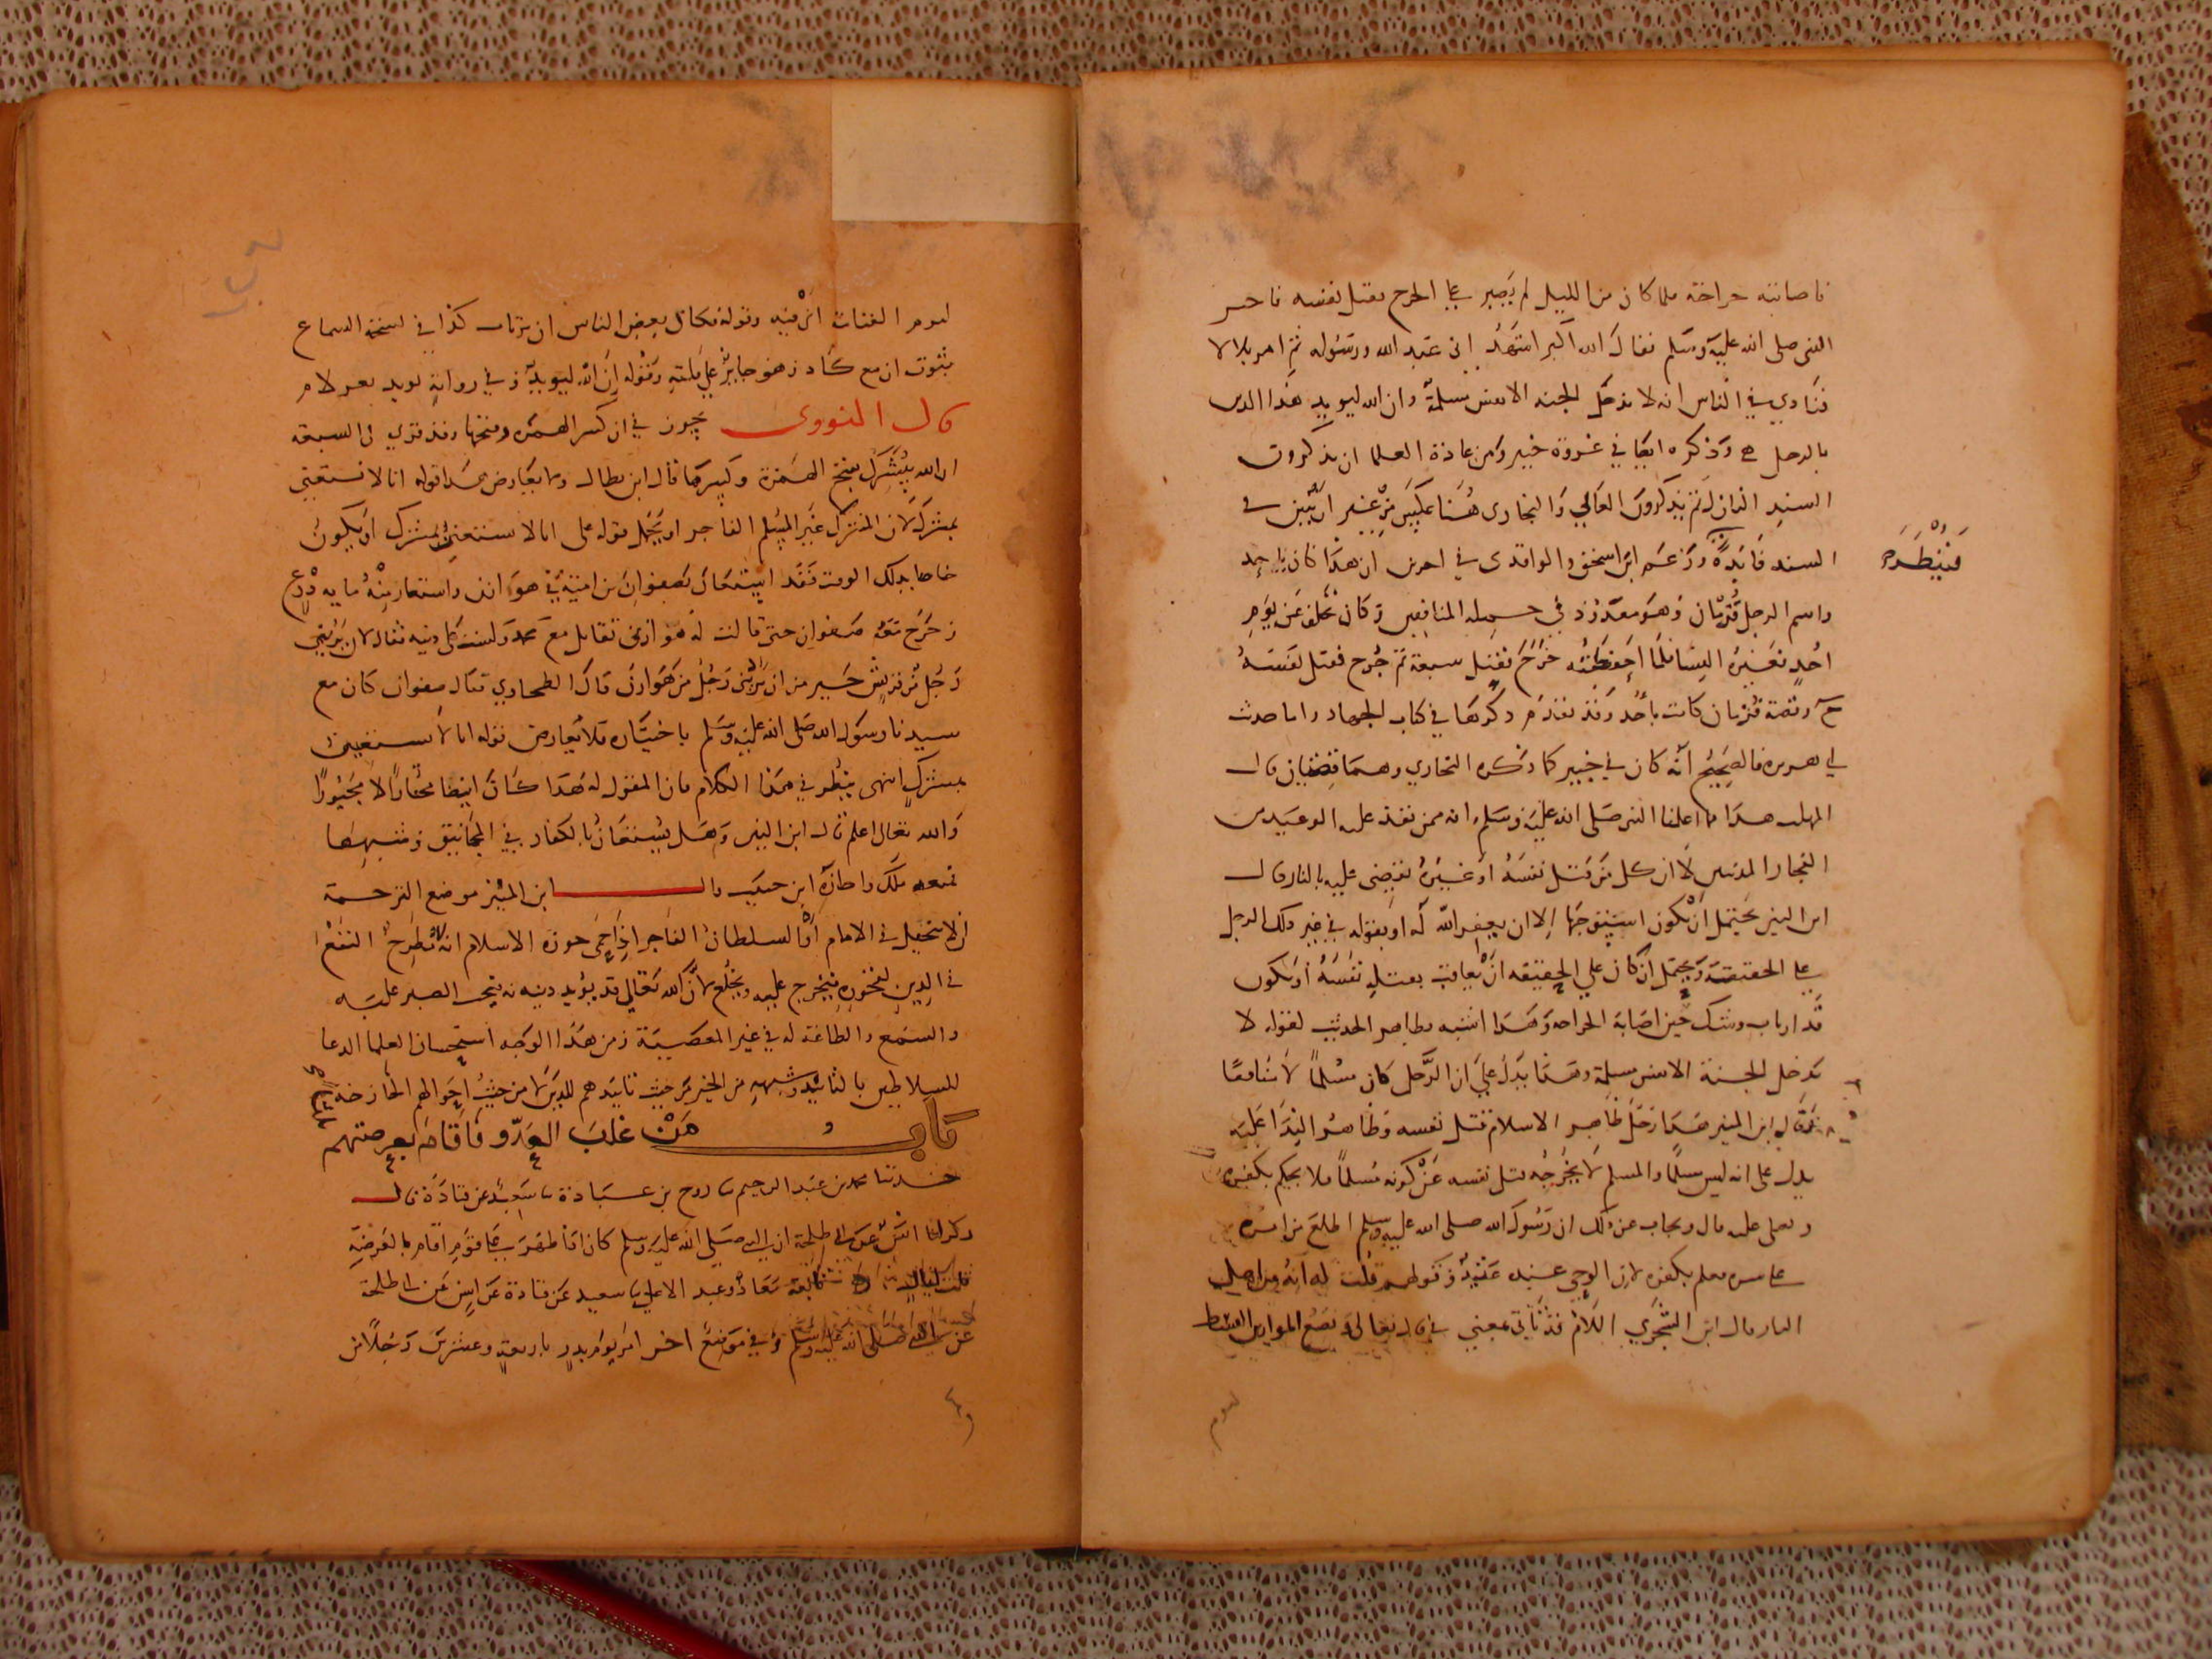 فاصابته جراحة فلما كان من الليل لم يصبر على الجرح فقتل نفسه فاخبر
النبي صلى الله عليه وسلم فقال الله اكبر اشهد اني عبد الله ورسوله ثم امر بلالا
فنادي في الناس انه لا يدخل الجنه الا نفس مسلمة وان الله ليويد هذا الدين
بالرجل وذكره ايضا في غزوة خيبر ومن عادة العلما ان يذكروا
السند النازل ثم يذكرون العالي والبخارى هنا عكس من غير ان في
السند فايدة وزعم ابن اسحق والواقدى في اخرين ان هذا كان باحد
فينظر
واسم الرجل قزمان وهو معدود في جمله المنافقين وكان تخلف عن يوم
احد فعيره النسا فلما احفظته خرج فقتل سبعة ثم جرح فقتل نفسه
وقصة قزمان كانت باحد وقد تقدم ذكرها في كتاب الجهاد واما حديث
ابي هريره فالصحيح انه كان في خيبر كما ذكره البخاري وهما قضيتان قال
المهلب هذا مما اعلمنا النبي صلى الله عليه وسلم انه ممن نفذ عليه الوعيد من
الفجار المدنبين لا ان كل من قتل نفسه او غيره يقضى عليه بالنار قال
ابن المنير يحتمل ان يكون استوجبها الا ان يغفر الله له او بقوله في خبر ذلك الرجل
على الحقيقة ويحتمل ان كان علي الحقيقه ان يعاقب بقتله نفسه او يكون
قد ارتاب وشك حين اصابة الجراحه وهذا اشبه بظاهر الحديث لقوله لا
يدخل الجنة الا نفس مسلمة وهذا يدل علي ان الرجل كان مسلما لا منافقا
قال ابن المنير هذا رجل ظاهر الاسلام قتل نفسه وظاهر الندا عليه
يدل على انه ليس مسلما والمسلم لا يخرجه قتل نفسه عن كونه مسلما فلا يحكم بكفره
ويصلى عليه قال ويجاب عن ذلك ان رسول الله صلى الله عليه وسلم اطلع من امره
على سره فعلم بكفره لان الوحي عنده عتيد وقولهم قلت له انه من اهل
النار قال ابن الشجري اللام قد تاتي بمعني في قال تعالى ونضع الموازين القسط
ليوم
ليوم القيامة اي فيه وقوله فكان بعض الناس ان يرتاب كذا في نسخة السماع
بثبوت ان مع كاد وهو جايز علي قلته وقوله ان الله ليويد وفي رواية يويد بغير لام
قال النووى يجوز في ان كسر الهمزه وفتحها وقد قري في السبعه
ان الله يبشرك بفتح الهمزة وكسرها قال ابن بطال وما يعارض هذا قوله انا لا نستعين
بمشرك لان المشرك غير المسلم الفاجر او يحمل قوله على انا لا نستعين بمشرك او يكون
خاصا بذلك الوقت فقد استعان بصفوان بن امية في هوازن واستعار منه مايه درع
وخرج معه صفوان حتى قالت له هوازن تقاتل مع محمد ولست على دينه فقال لان يربني
رجل من قريش خير من ان يربني رجل من هوازن قال الطحاوي قتال صفوان كان مع
سيدنا رسول الله صلى الله عليه وسلم باختياره فلا يعارض قوله انا لا نستعين
بمشرك انتهى ينظر في هذا الكلام فان المقول له هذا كان ايضا مختارا لا مجبورا
والله تعالى اعلم قال ابن المنير وهل يستعان بالكفار في المجانيق وشبهها
فمنعه ملك واجازه ابن حبيب قال ابن المنير موضع الترجمة
ان لا يتخيل في الامام او السلطان الفاجر اذا حمى حوزه الاسلام انه مطرح النفع
في الدين لفجوره فيخرج عليه ويخلع لان الله تعالي قد يؤيد دينه به فيجب الصبر عليه
والسمع والطاعة له في غير المعصية ومن هذا الوجه استحسان العلما الدعا
للسلاطين بالتاييد وشبهه من الخير من حيث تاييدهم للدين لا من حيث احوالهم الخارجة
باب من غلب العدو فاقام بعرصتهم ثلاثا
حدثنا محمد بن عبد الرحيم ثنا روح بن عبادة ثنا سعيد عن قتادة قال
ذكر لنا انس عن ابي طلحة ان النبي صلى الله عليه وسلم كان اذا ظهر على قوم اقام بالعرصة
ثلث ليال تابعه معاذ وعبد الاعلي ثنا سعيد عن قتادة عن انس عن ابي طلحة
عن النبي صلى الله عليه وسلم وفي موضع اخر امر يوم بدر باربعة وعشرين رجلا من